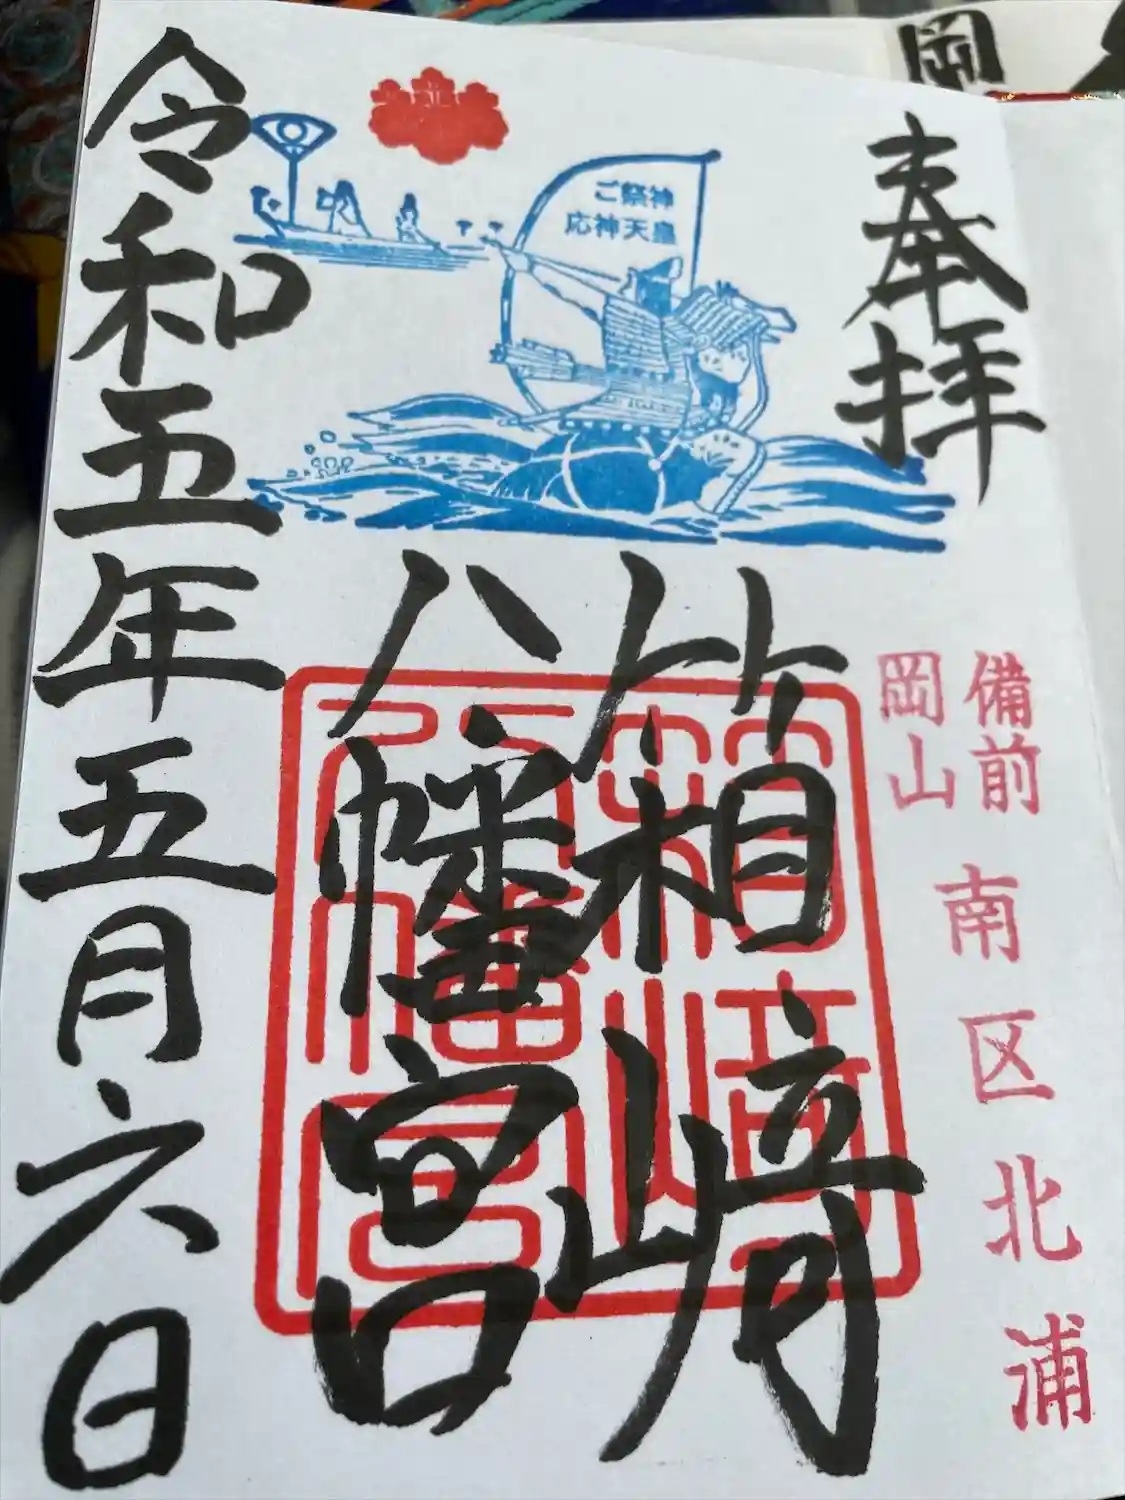 岡
奉拝
ご祭神
応神天皇
備前
岡山 南区北浦
箱崎
八幡宮
箱崎
八幡宮
令和五年五月六日